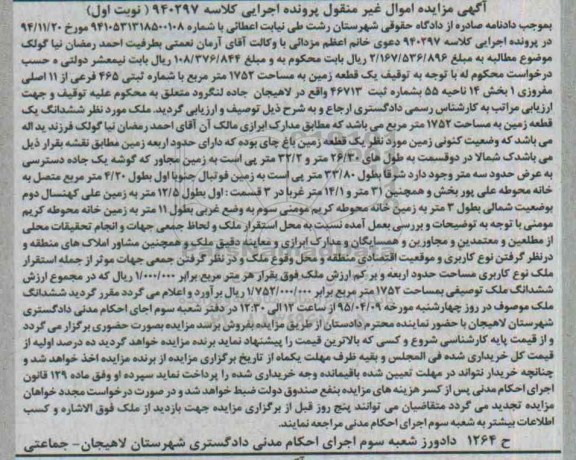 آگهی مزایده اموال غیر منقول پرونده اجرایی کلاسه ۹۴۰۲۹۷ ( نوبت اول)
بموجب دادنامه صادره از دادگاه حقوقی شهرستان رشت طی نیابت اعطائی با شماره ۹۴۱۰۵۳۱۳۱۸۵۰۰۱۰۸ مورخ ۹۴/۱۱/۲۰
در پرونده اجرایی کلاسه ۹۴۰۲۹۷ دعوی خانم اعظم مزدائی با وکالت آقای آرمان نعمتی بطرفیت احمد رمضان نیا گولک
موضوع مطالبه به مبلغ ۲/۱۶۷/۵۳۶/۸۹۶ ریال بابت محکوم به و مبلغ ۱۰۸/۳۷۶/۸۴۴ ریال بابت نیمعشر دولتی ه حسب
درخواست محکوم له با توجه به توقیف یک قطعه زمین به مساحت ۱۷۵۲ متر مربع با شماره ثبتی ۴۶۵ فرعی از ۱۱ اصلی
مفروزی ۱ بخش ۱۴ ناحیه ۵۵ بشماره ثبت ۴۶۷۱۳ واقع در لاهیجان جاده لنگرود متعلق به محکوم علیه توقیف و جهت
ارزیابی مراتب به کارشناس رسمی دادگستری ارجاع و به شرح ذیل توصیف و ارزیابی گردید. ملک مورد نظر ششدانگ یک
قطعه زمین به مساحت ۱۷۵۲ متر مربع می باشد که مطابق مدارک ابرازی مالک آن آقای احمد رمضان نیا گولک فرزند ید اله
می باشد که وضعیت کنونی زمین مورد نظر یک قطعه زمین باغ چای بوده که دارای حدود اربعه زمین مطابق نقشه بقرار ذیل
می باشدک شمالا در دوقسمت به طول های ۲۶/۳۰ متر و ۳۲/۲ متر پی است به زمین مجاور که گوشه یک جاده دسترسی
به عرض حدود سه متر وجود دارد شرقا بطول ۳۳/۸۰ متر پی است به زمین فوتبال جنوبا اول بطول ۴/۲۰ متر مربع متصل به
خانه محوطه علی پور بخش و همچنین ۳۱ متر و ۱۴/۱ متر غربا در ۳ قسمت : اول بطول ۱۲/۵ متر به زمین علی کهنسال دوم
بوضعیت شمالی بطول ۳ متر به زمین خانه محوطه کریم مومنی سوم به وضع غربی بطول ۱۱ متر به زمین خانه محوطه کریم
مومنی با توجه به توضیحات و بررسی بعمل آمده نسبت به محل استقرار ملک و لحاظ جمعی جهات و انجام تحقیقات محلی
از مطلعین و معتمدین و مجاورین و همسایگان و مدارک ابرازی و معاینه دقیق ملک و همچنین مشاور املاک های منطقه و
درنظر گرفتن نوع کاربری و موقعیت اقتصادی منطقه و محل وقوع ملک و در نظر گرفتن جمعی جهات موثر از جمله استقرار
ملک نوع کاربری مساحت حدود اربعه و بر کم ارزش ملک فوق بقرار هر متر مربع برابر ۱/۰۰۰/۰۰۰ ریال که در مجموع ارزش
ششدانگ ملک توصیفی بمساحت ۱۷۵۲ متر مربع برابر ۱/۷۵۲/۰۰۰/۰۰۰ ریال برآورد و اعلام می گردد مقرر گردید ششدانگ
ملک موصوف در روز چهارشنبه مورخه ۹۵/۰۴/۰۹ از ساعت ۱۲ الی ۱۲:۳۰ در دفتر شعبه سوم اجرای احکام مدنی دادگستری
شهرستان لاهیجان با حضور نماینده محترم دادستان از طریق مزایده بفروش برسد مزایده بصورت حضوری برگزار می گردد
و از قیمت پایه کارشناسی شروع و کسی که بالاترین قیمت را پیشنهاد نماید برنده مزایده خواهد گردید ده درصد اولیه از
قیمت کل خریداری شده فی المجلس و بقیه ظرف مهلت یکماه از تاریخ برگزاری مزایده از برنده مزایده اخذ خواهد شد و
چنانچه خریدار نتواند در مهلت تعیین شده باقیمانده وجه خریداری شده را پرداخت نماید سپرده او وفق ماده ۱۲۹ قانون
اجرای احکام مدنی پس از کسر هزینه های مزایده بنفع صندوق دولت ضبط خواهد شد و در صورت درخواست مجدد خواهان
مزایده تجدید می گردد متقاضیان می توانند پنج روز قبل از برگزاری مزایده جهت بازدید از ملک فوق الاشاره و کسب
اطلاعات بیشتر به شعبه سوم اجرای احکام مدنی مراجعه نمایند.
ح ۱۲۶۴ دادورز شعبه سوم اجرای احکام مدنی دادگستری شهرستان لاهیجان- جماعتی